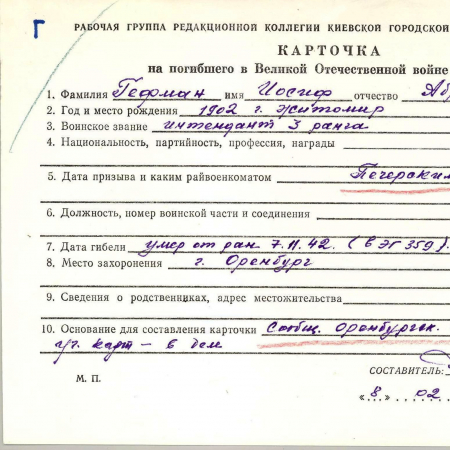 Г
РАБОЧАЯ ГРУППА РЕДАКЦИОННОЙ КОЛЛЕГИИ КИЕВСКОЙ ГОРОДСКОЙ
КАРТОЧКА
на погибшего в Великой Отечественной войне
1. Фамилия Гефман имя Иосиф отчество Аб
2. Год и место рождения 1902 г. Житомир
3. Воинское звание интендант 3 ранга
4. Национальность, партийность, профессия, награды
5. Дата призыва и каким райвоенкоматом Печерским
6. Должность, номер воинской части и соединения
7. Дата гибели умер от ран 7.11.42. (в ЭГ 359).
8. Место захоронения г. Оренбург
9. Сведения о родственниках, адрес местожительства
10. Основание для составления карточки Сообщ. Оренбургск.
карт - в деле
СОСТАВИТЕЛЬ:
М. П.
«8» 02